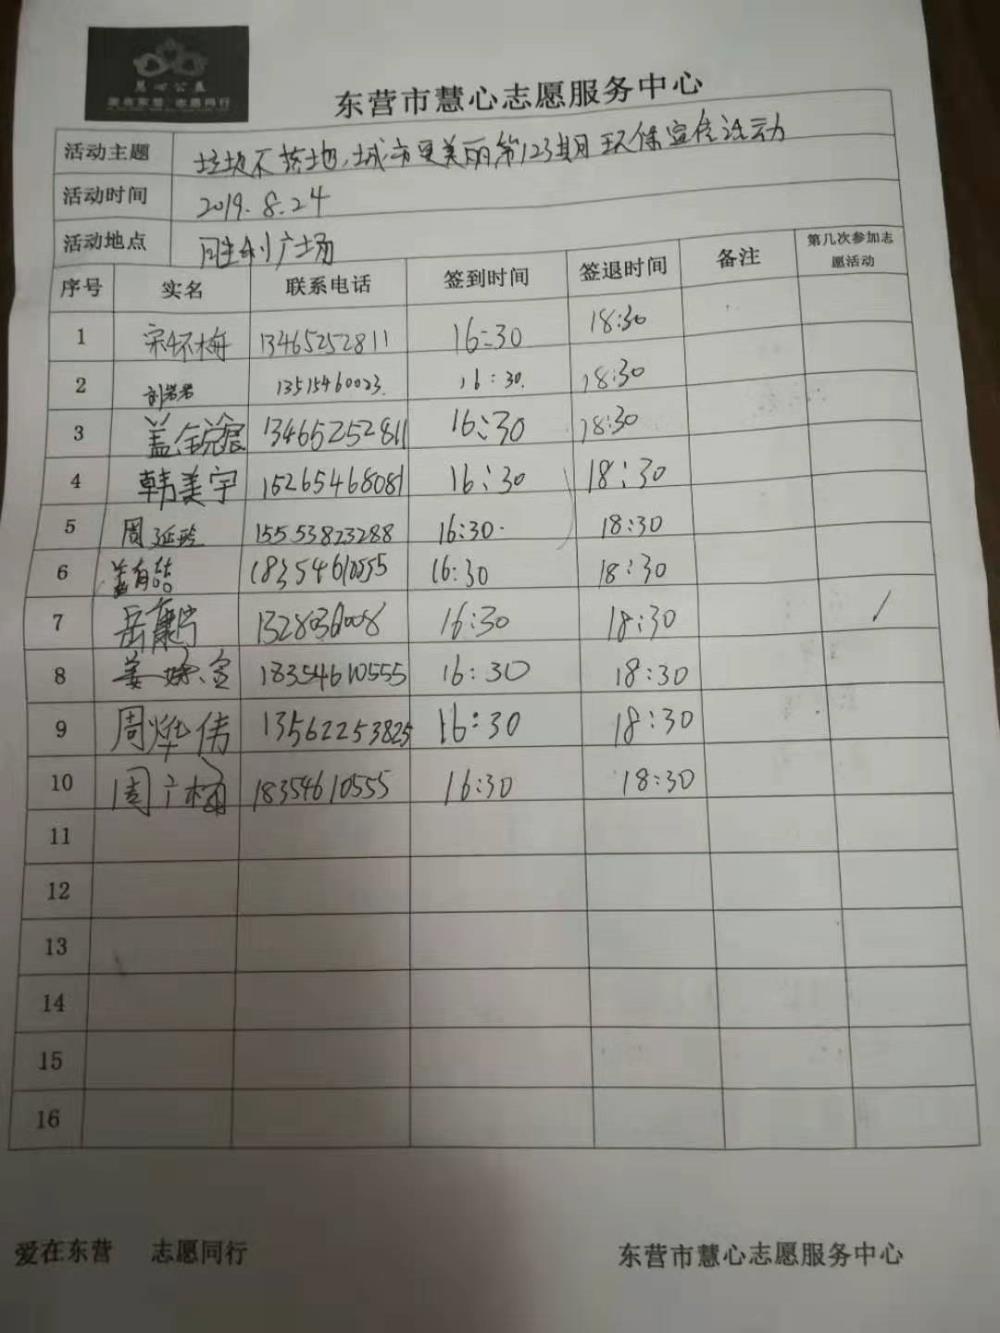 慧心公益
爱在东营 志愿同行
东营市慧心志愿服务中心
活动主题 垃圾不落地,城市更美丽第123期环保宣传活动
活动时间 2019.8.24
活动地点 胜利广场
序号 实名 联系电话 签到时间 签退时间 备注 第几次参加志愿活动
1 宋怀梅 13465252811 16:30 18:30
2 13515460023 16:30 18:30
3 盖全 13465252811 16:30 18:30
4 韩美宇 15265468081 16:30 18:30
5 周延玲 15553823288 16:30 18:30
6 盖有喆 18354610555 16:30 18:30
7 岳康宁 16:30 18:30 /
8 姜 18354610555 16:30 18:30
9 周烨伟 13562253825 16:30 18:30
10 周广 18354610555 16:30 18:30
11
12
13
14
15
16
爱在东营 志愿同行 东营市慧心志愿服务中心